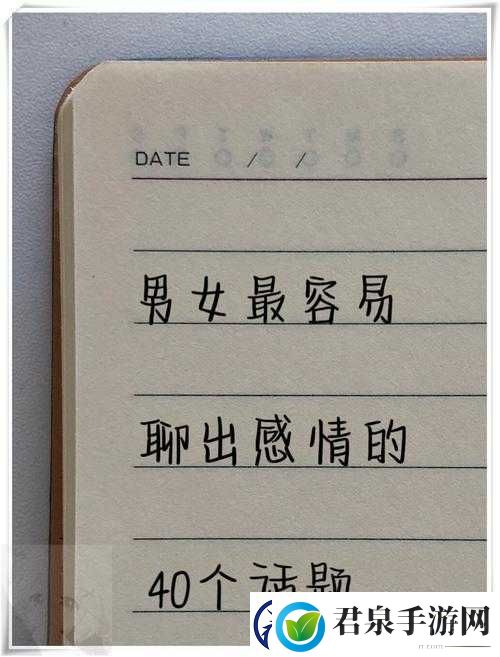 DATE / /
男女最容易
聊出感情的
40个话题
君泉手游网